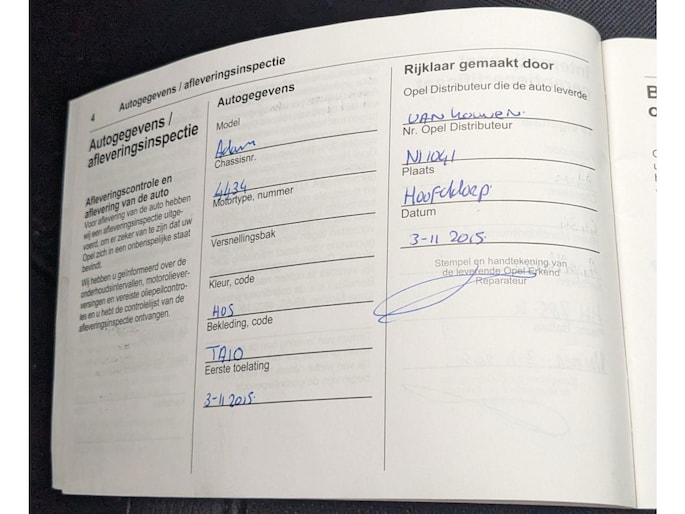 4
Autogegevens / afleveringsinspectie
Autogegevens /
afleveringsinspectie
Afleveringscontrole en
aflevering van de auto
Voor aflevering van de auto hebben
wij een afleveringsinspectie uitge-
voerd, om er zeker van te zijn dat uw
Opel zich in een onberispelijke staat
bevindt.
Wij hebben u geïnformeerd over de
onderhoudsintervallen, motoroliever-
versingen en vereiste oliepeilcontro-
les en u hebt de controlelijst van de
afleveringsinspectie ontvangen.
Autogegevens
Model
Adam
Chassisnr.
4434
Motortype, nummer
Versnellingsbak
Kleur, code
HOS
Bekleding, code
TAIO
Eerste toelating
3-11 2015.
Rijklaar gemaakt door
Opel Distributeur die de auto leverde
VAN
Nr. Opel Distributeur
N11041
Plaats
Hoofddorp.
Datum
3-11 2015.
Stempel en handtekening van
de leverende Opel Erkend
Reparateur